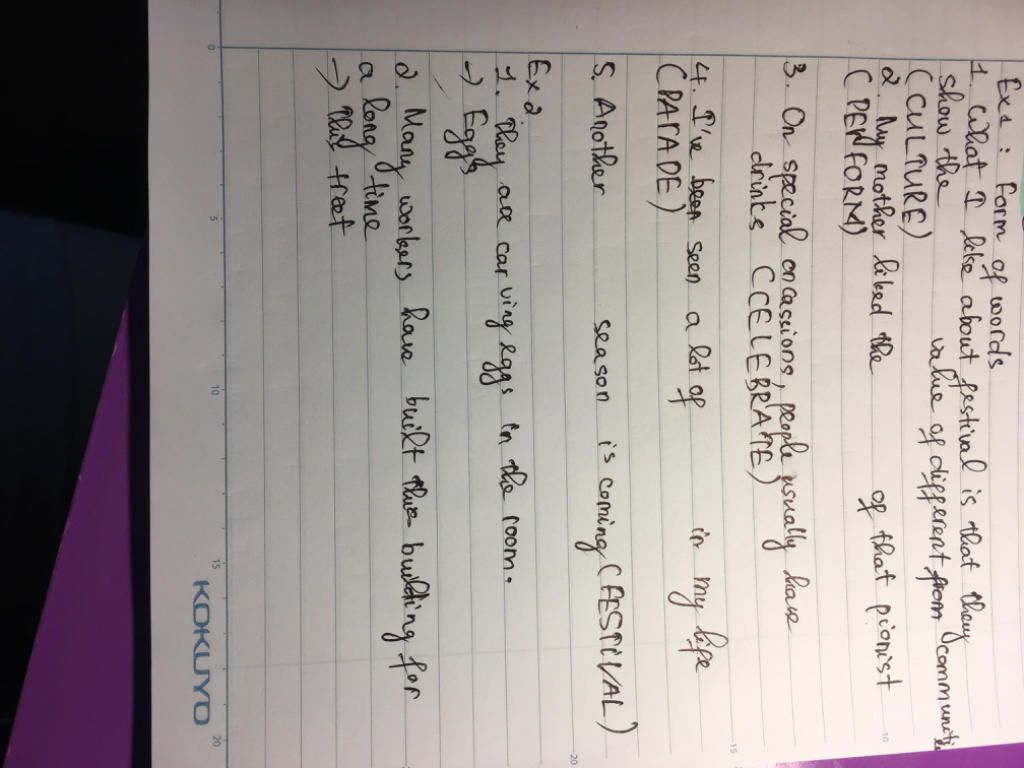 Ex1: Form of words
1. What I like about festival is that they
show the value of different from communities
(CULTURE)
2. My mother liked the of that pionist
(PERFORM)
3. On special oncassions, people usually have
drinks (CELEBRATE)
4. I've been seen a lot of in my life
(PARADE)
5. Another season is coming (FESTIVAL)
Ex2.
1. They are carving eggs in the room.
→ Eggs
2. Many workers have built this building for
a long time
→ This treet
0 5 10 15 20
KOKUYO
10 15 20